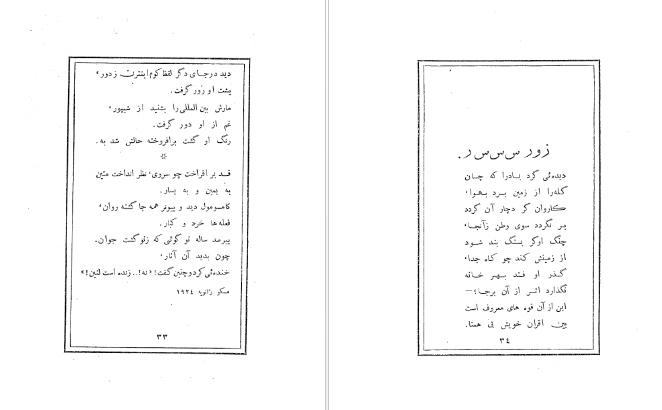 دید درجای دگر لفظ کوم اینترن، زدور،
پشت او زور گرفت.
مارش بین‌المللی را بشنید از شیپور،
غم از او دور گرفت.
رنگ او گشت برافروخته حالش شد به.
*
قد بر افراخت چو سروی، نظر انداخت متین
به یمین و به یسار.
کامسومول دید و پیونر همه جا گشته روان،
فعله‌ها خرد و کبار.
پیرصد ساله تو گوئی که زنو گشت جوان.
چون بدید آن آثار،
خنده‌ئی کرد و چنین گفت: «نه!.. زنده است لنین!»
مسکو ژانویه ۱۹۲٤
۳۳
زور س س س ر.
دیده‌ئی گرد بادرا که چسان
کله را از زمین برد بهوا،
کاروان گر دچار آن گردد
بر نگردد سوی وطن زآنجا،
چنگ اوکر بسنگ بند شود
از زمینش کند چو کاه جدا،
گذر او فتد بهر خانه
نگذارد اثر از آن برجا؛—
این از آن قوه های معروف است
بین اقران خویش بی همتا.
۳٤